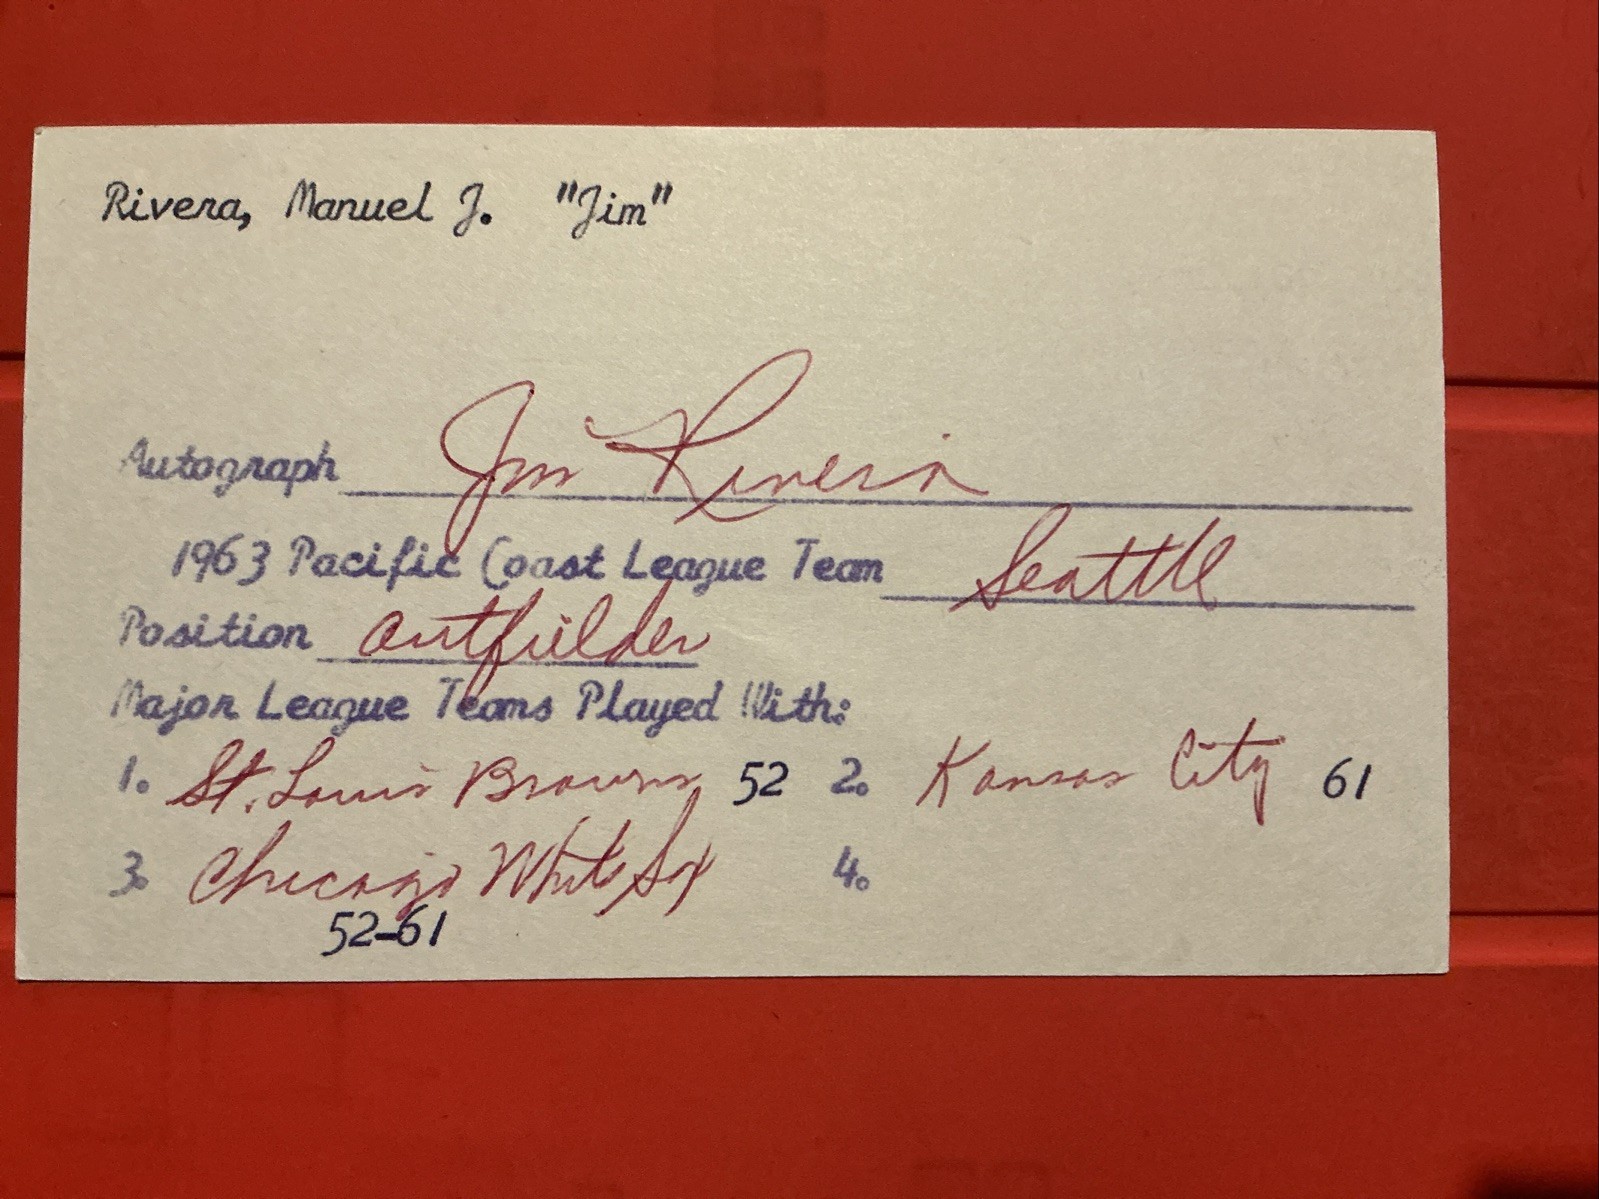 Rivera, Manuel J. "Jim"
Autograph Jim Rivera
1963 Pacific Coast League Team Seattle
Position outfielder
Major League Teams Played With:
1. St. Louis Browns 52 2. Kansas City 61
3. Chicago White Sox 4.
52-61